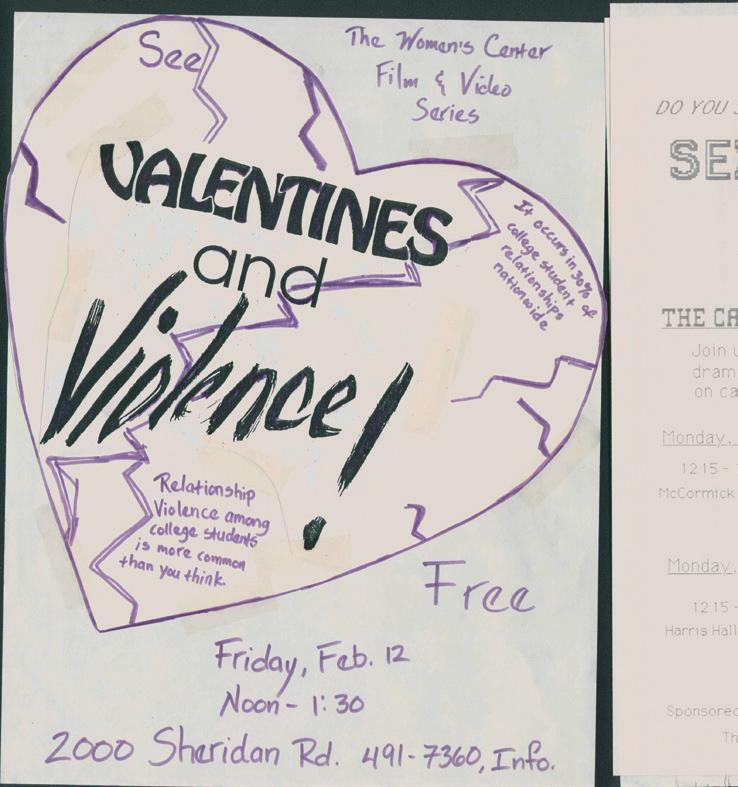 See
The Women's Center
Film & Video
Series
VALENTINES
and
Violence!
It occurs in 30% of
college student
relationships
nationwide
Relationship
Violence among
college students
is more common
than you think.
Free
Friday, Feb. 12
Noon - 1:30
2000 Sheridan Rd. 491-7360, Info.
DO YOU
THE CA
Join u
dram
on ca
Monday,
12 15 -
McCormick
Monday,
12 15 -
Harris Hall
Sponsored
Th